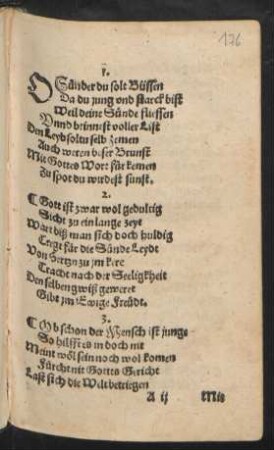 176
1.
O Sünder du solt Büssen
Da du jung vnd starck bist
Weil deine Sünde fliessen
Vnnd brinnest voller List
Den Leyb soltu selb zemen
Auch weren böser Brunst
Mit Gottes Wort für kemen
Zu spot du wirdest sunst.
2.
¶ Gott ist zwar wol gedultig
Sicht zu ein lange zeyt
Wart biß man sich doch huldig
Tregt für die Sünde Leydt
Von hertzn zu jm kere
Tracht nach der Seeligkheit
Den selben gwiß geweret
Gibt jm Ewige Freüdt.
3.
¶ Ob schon der Mensch ist junge
So hilfft es in doch nit
Meint wöl sein noch wol komen
Fürcht nit Gottes Gericht
Last sich die Welt betriegen
A ij Mit